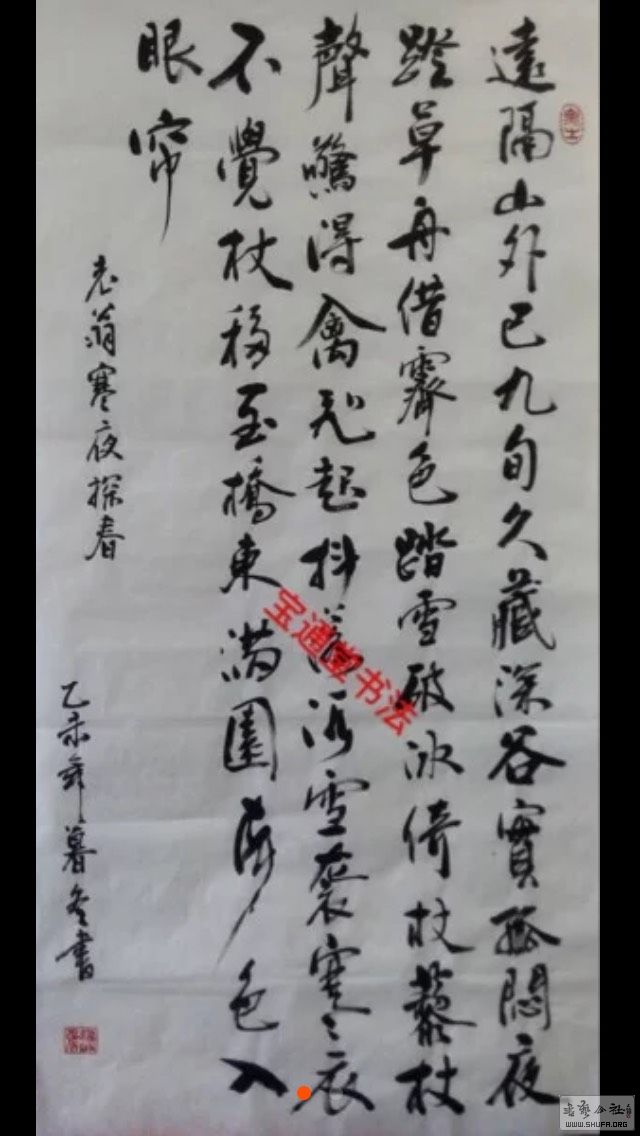 遠隔山外已九旬久藏深谷實孤悶夜
蹬草舟借霽色踏雪破冰倚杖藜杖
聲驚得禽飛起抖落浮雪裘寒衣
不覺杖移至橋東滿園春色入
眼帘
老翁寒夜探春
乙未年暮冬書
宝通堂书法
书艺公社
WWW.SHUFA.ORG